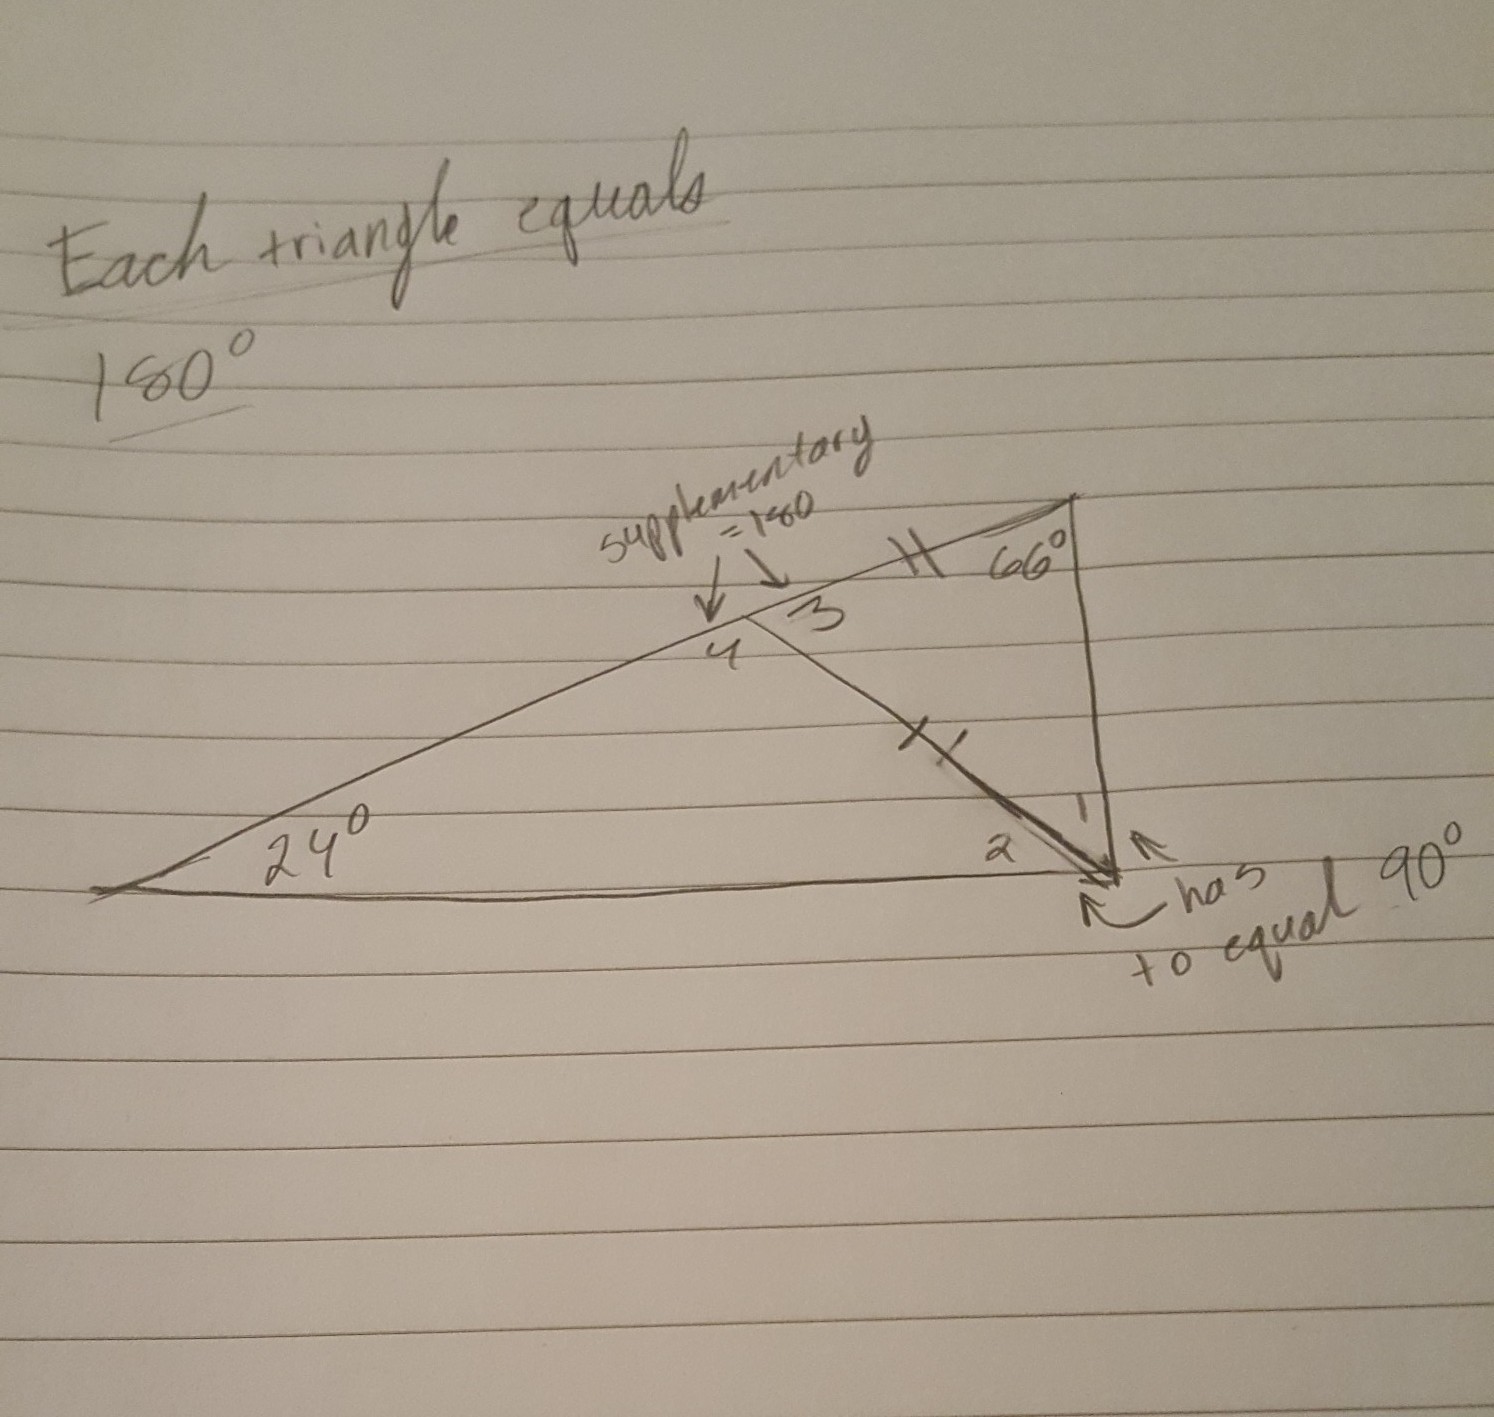 Each triangle equals
180°
supplementary
=180
66°
3
4
24°
1
2
has
to equal 90°